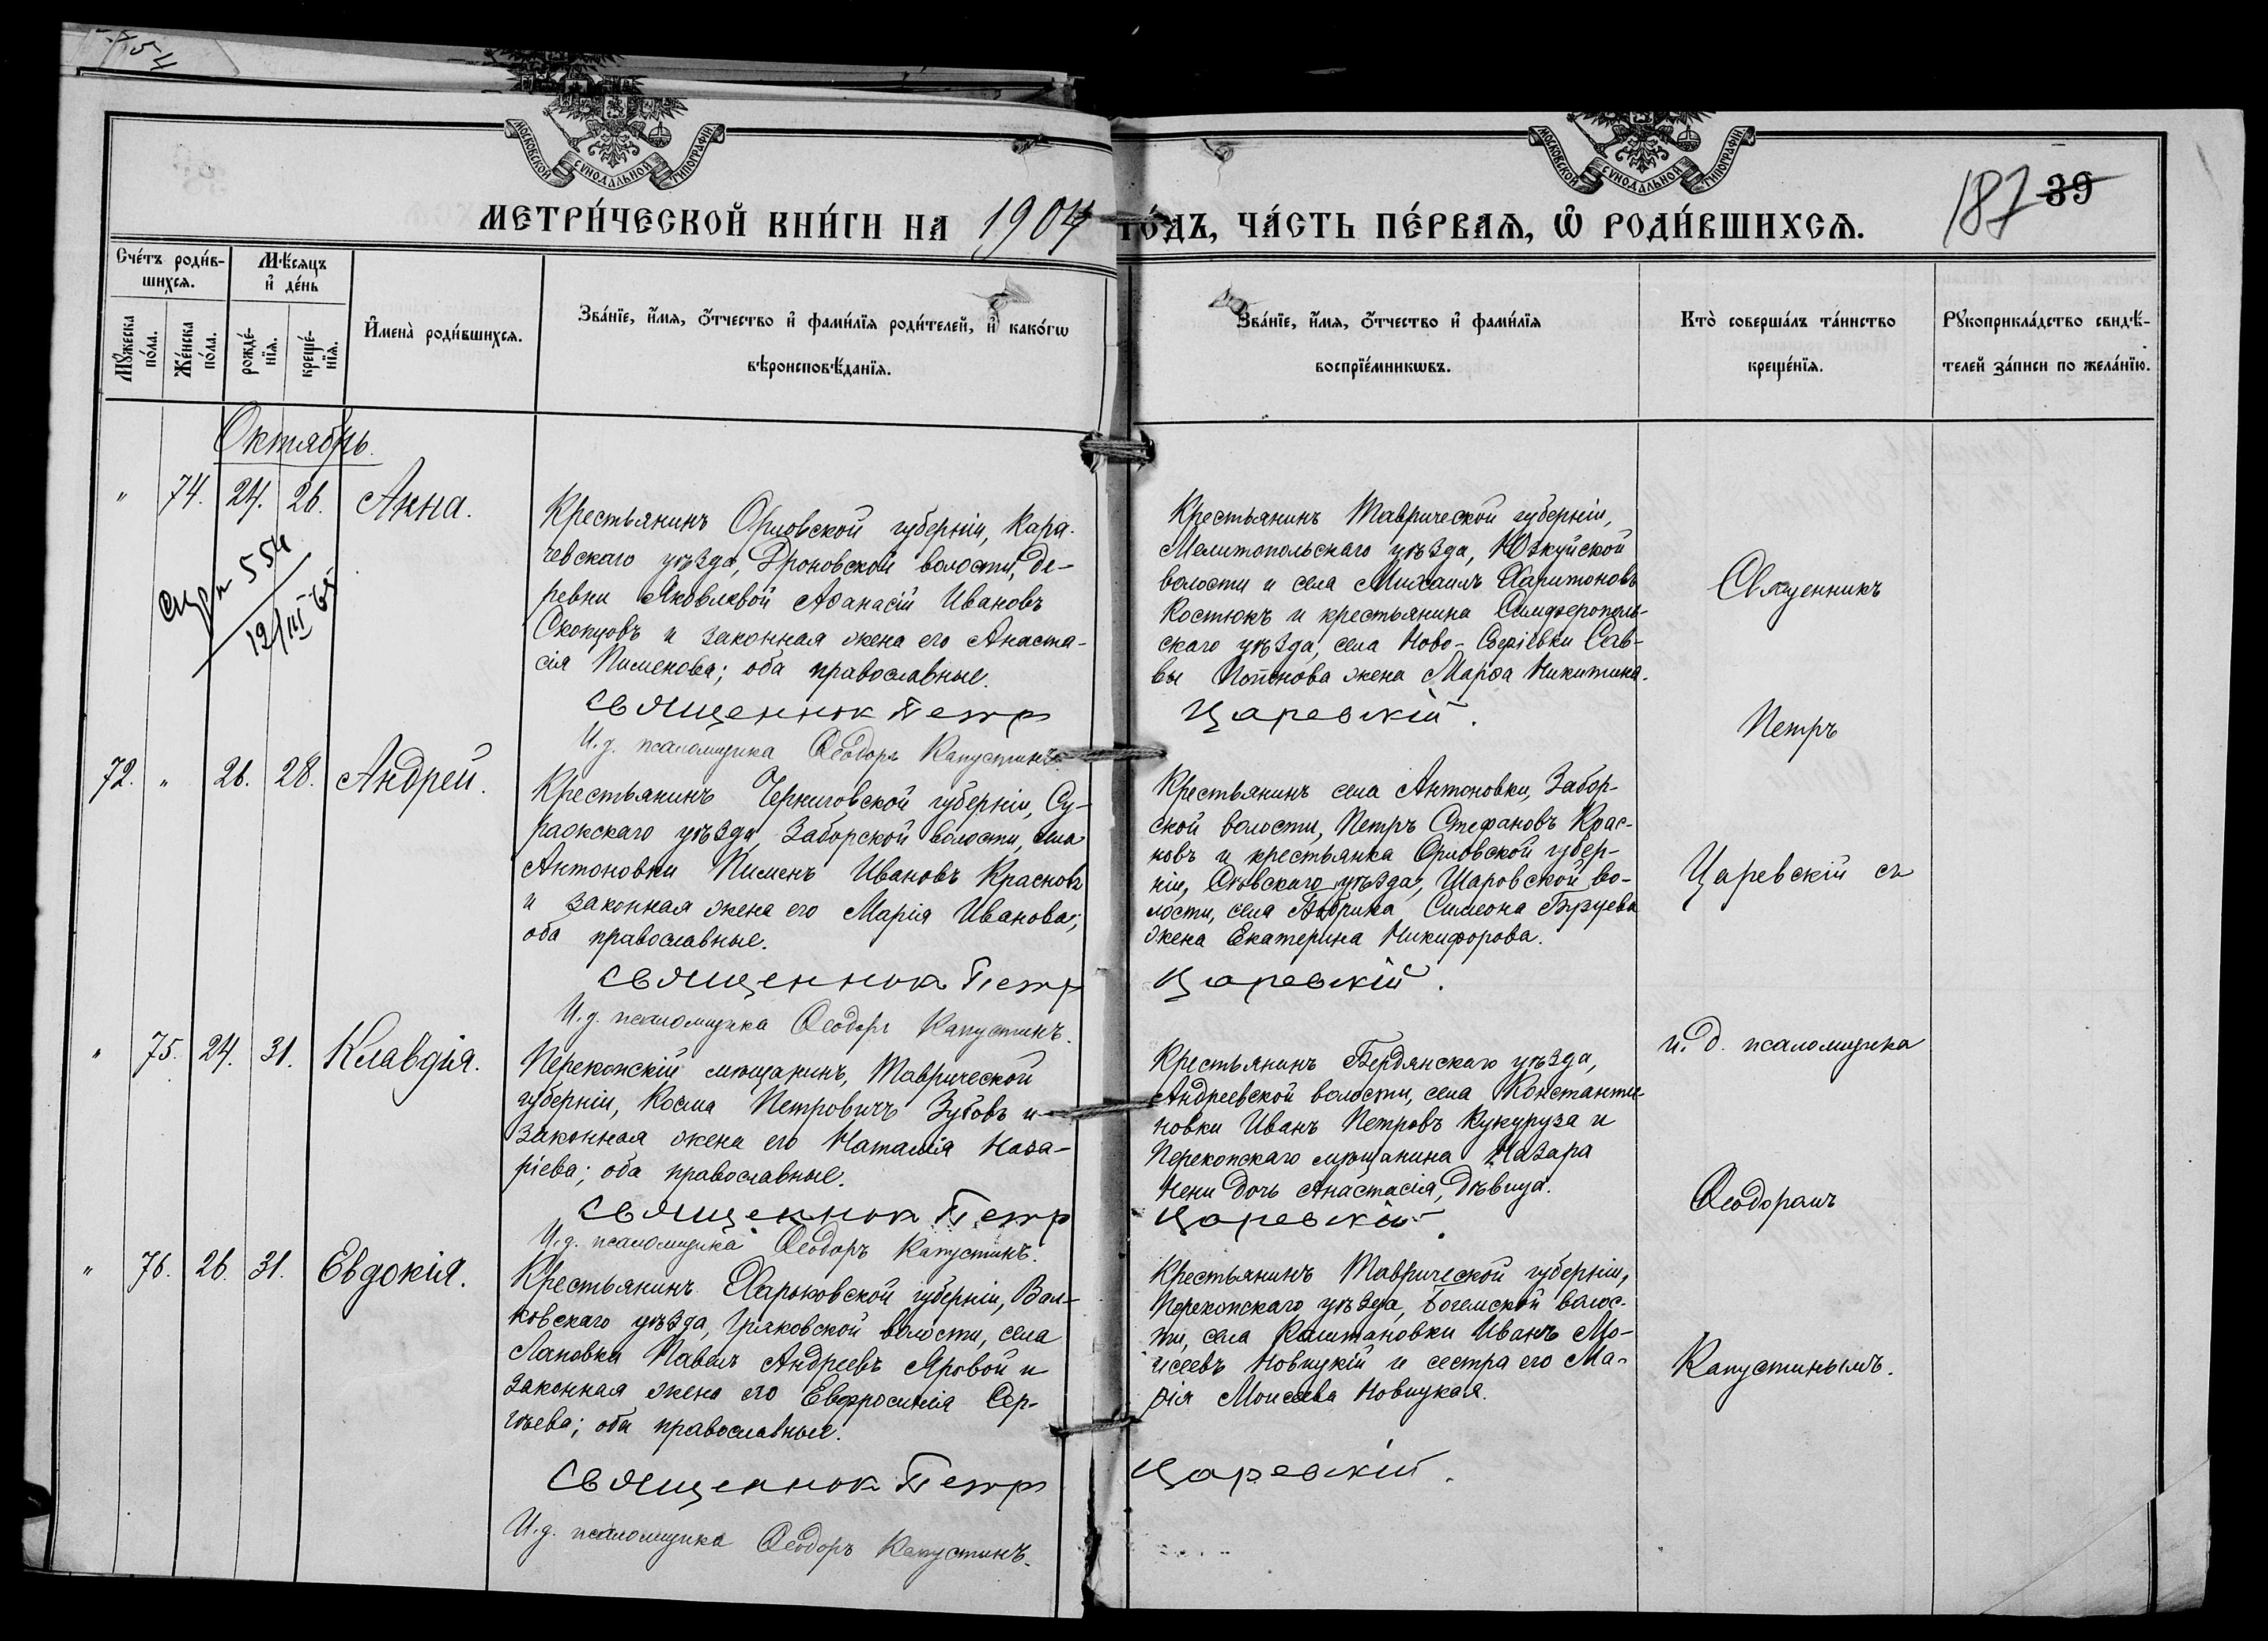 МОСКОВСКОЙ СѴНОДАЛЬНОЙ ТИПОГРАФІИ
МОСКОВСКОЙ СѴНОДАЛЬНОЙ ТИПОГРАФІИ
МЕТРИ́ЧЕСКОЙ КНИ́ГИ НА 1904 ГО́ДЪ, ЧА́СТЬ ПЕ́РВАѦ, Ѡ҆ РОДИ́ВШИХСѦ.
187 39
Сче́тъ роди́в-
шихсѧ.
Мꙋ́жеска по́ла.
Же́нска по́ла.
Мѣ́сѧцъ
и҆ де́нь
рожде́-
нїѧ.
креще́-
нїѧ.
И҆мена̀ роди́вшихсѧ.
Зва́нїе, и҆́мѧ, ѻ҆́тчество и҆ фами́лїѧ роди́телей, и҆ како́гѡ
вѣроисповѣ́данїѧ.
Зва́нїе, и҆́мѧ, ѻ҆́тчество и҆ фами́лїѧ
воспрїе́мникѡвъ.
Кто̀ соверша́лъ та́инство
креще́нїѧ.
Рꙋкоприкла́дство свидѣ́-
телей за́писи по жела́нїю.
Октябрь.
" 74. 24. 26. Анна.
554
12/III 65
Крестьянинъ Орловской губерніи, Кара-
чевскаго уѣзда, Дроновской волости, де-
ревни Яковлевой Аѳанасій Ивановъ
Скопцовъ и законная жена его Анаста-
сія Пименова; оба православные.
Священникъ Петръ
И. д. псаломщика Ѳеодоръ Капустинъ.
Крестьянинъ Таврической губерніи,
Мелитопольскаго уѣзда, Юзкуйской
волости и села Михаилъ Харитоновъ
Костюкъ и крестьянина Симферополь-
скаго уѣзда, села Ново-Сергіевки Сав-
вы Попенова жена Марѳа Никитина.
Царевскій.
72. " 26. 28. Андрей.
Крестьянинъ Черниговской губерніи, Су-
ражскаго уѣзда, Заборской волости, села
Антоновки Пименъ Ивановъ Красновъ
и законная жена его Марія Иванова;
оба православные.
Священникъ Петръ
И. д. псаломщика Ѳеодоръ Капустинъ.
Крестьянинъ села Антоновки, Забор-
ской волости, Петръ Стефановъ Крас-
новъ и крестьянка Орловской губер-
ніи, Сѣвскаго уѣзда, Шаровской во-
лости, села Симеона
жена Екатерина Никифорова.
Царевскій.
" 75. 24. 31. Клавдія.
Перекопскій мѣщанинъ, Таврической
губерніи, Косма Петровичъ Зубовъ и
законная жена его Наталія Наза-
ріева; оба православные.
Священникъ Петръ
И. д. псаломщика Ѳеодоръ Капустинъ.
Крестьянинъ Бердянскаго уѣзда,
Андреевской волости, села Константи-
новки Иванъ Петровъ Кукуруза и
Перекопскаго мѣщанина Назара
Нени дочь Анастасія, дѣвица.
Царевскій.
" 76. 26. 31. Евдокія.
Крестьянинъ Харьковской губерніи, Вал-
ковскаго уѣзда, Гряковской волости, села
Лановки Павелъ Андреевъ Яровой и
законная жена его Евфросинія Сер-
гѣева; оба православные.
Священникъ Петръ
И. д. псаломщика Ѳеодоръ Капустинъ.
Крестьянинъ Таврической губерніи,
Перекопскаго уѣзда, Богемской волос-
ти, села Калитановки Иванъ Мо-
исеевъ Новицкій и сестра его Ма-
рія Моисеева Новицкая.
Царевскій.
Священникъ
Петръ
Царевскій съ
и. д. псаломщика
Ѳеодоромъ
Капустинымъ.